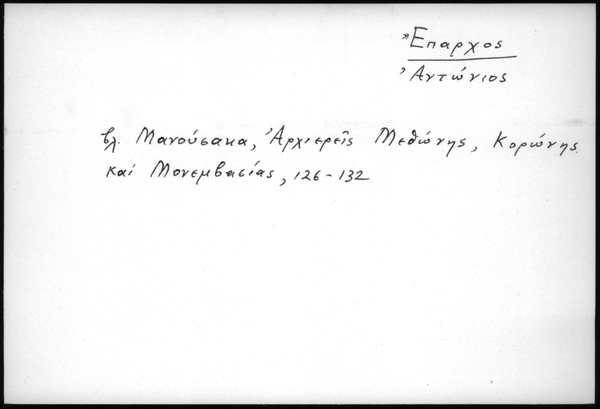 Ἔπαρχος
Ἀντώνιος
βλ. Μανούσακα, Ἀρχιερεῖς Μεθώνης, Κορώνης
καὶ Μονεμβασίας, 126-132